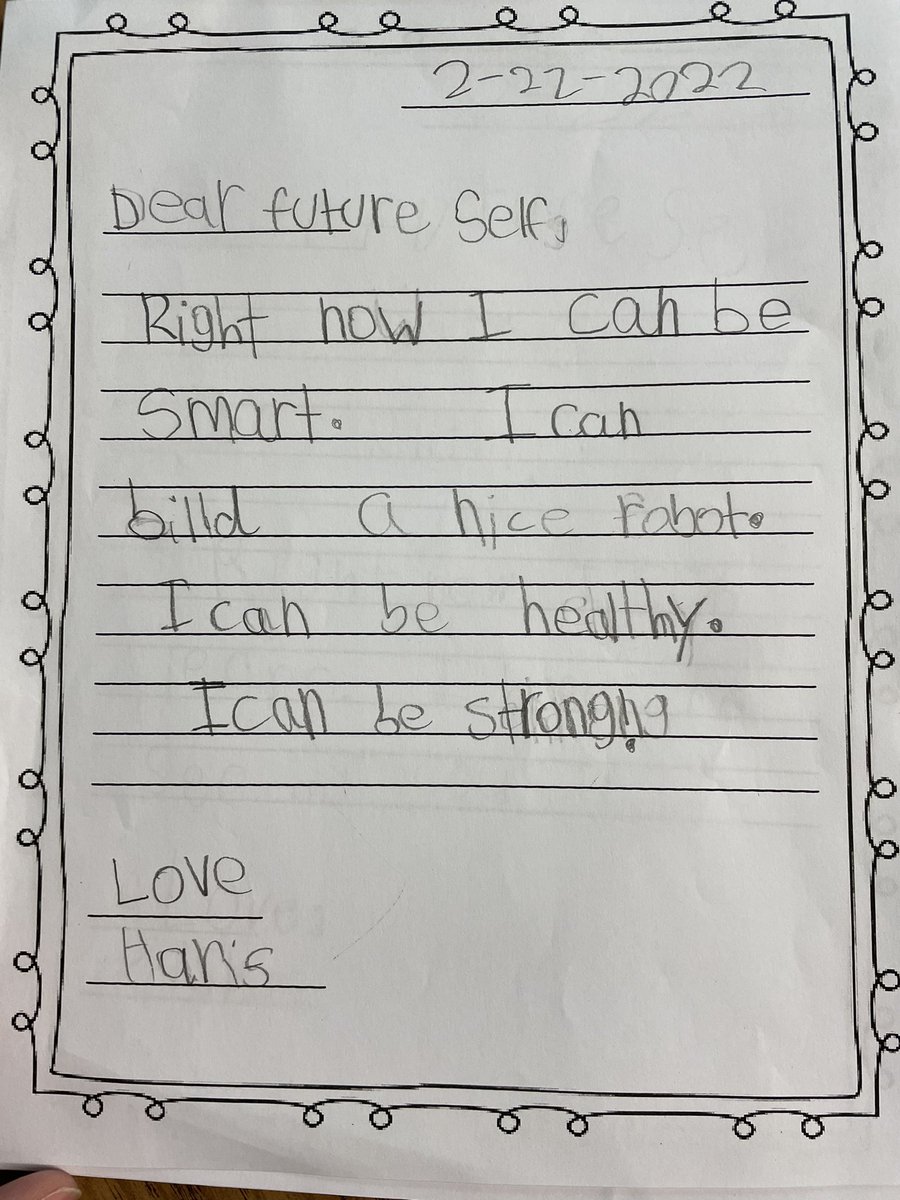 2-22-2022
Dear future Self,
Right now I can be
Smart. I can
billd a nice robot.
I can be healthy.
I can be strong
Love
Haris